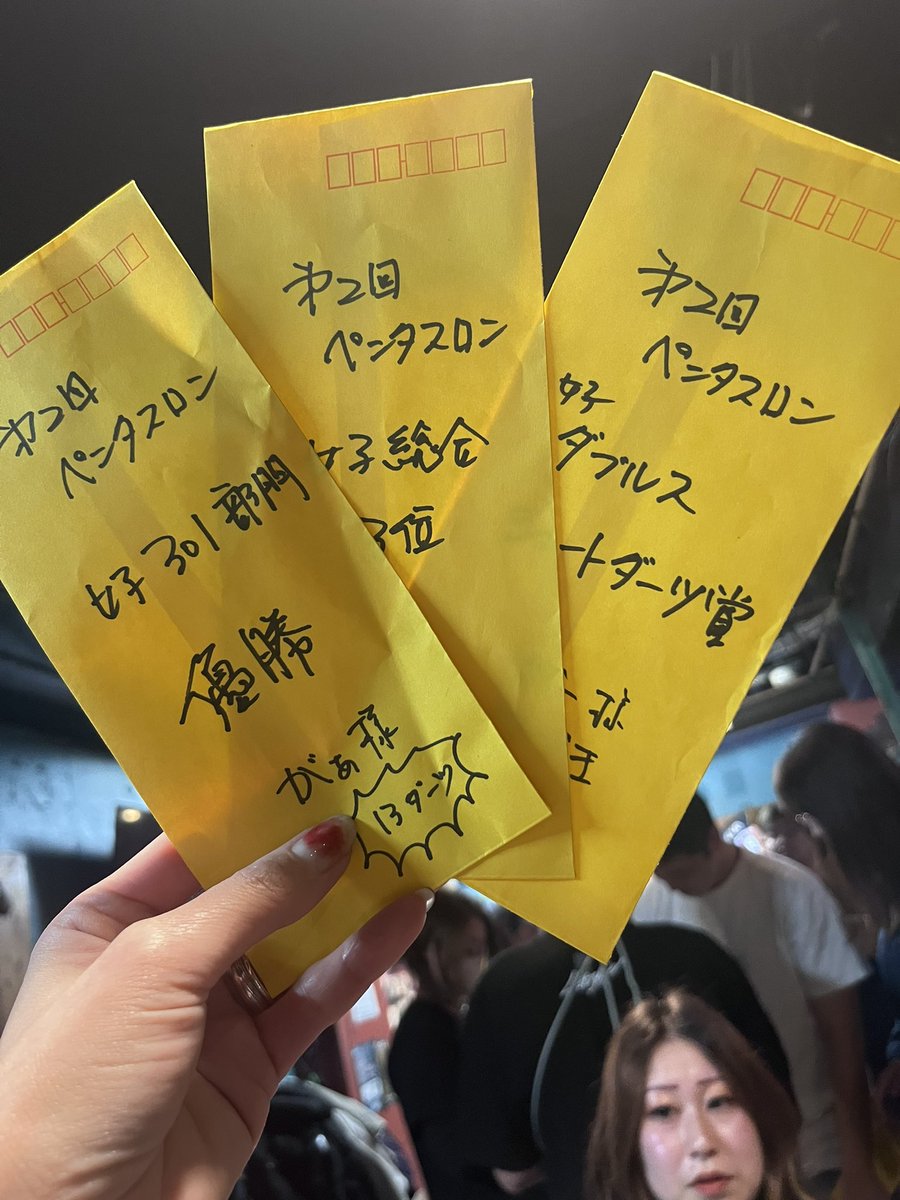 第2回
ペンタスロン
女子301部門
優勝
がぁ様
13ダーツ
第2回
ペンタスロン
女子総合
3位
第2回
ペンタスロン
女子
ダブルス
ートダーツ賞
様